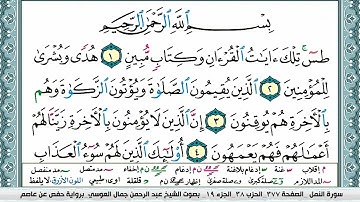 بِسْمِ اللَّهِ الرَّحْمَٰنِ الرَّحِيمِ
طسٓ ۚ تِلْكَ ءَايَٰتُ ٱلْقُرْءَانِ وَكِتَابٍ مُّبِينٍ ١ هُدًى وَبُشْرَىٰ
لِلْمُؤْمِنِينَ ٢ ٱلَّذِينَ يُقِيمُونَ ٱلصَّلَوٰةَ وَيُؤْتُونَ ٱلزَّكَوٰةَ وَهُم
بِٱلْأَخِرَةِ هُمْ يُوقِنُونَ ٣ إِنَّ ٱلَّذِينَ لَا يُؤْمِنُونَ بِٱلْأَخِرَةِ زَيَّنَّا لَهُمْ
أَعْمَٰلَهُمْ فَهُمْ يَعْمَهُونَ ٤ أُو۟لَٰٓئِكَ ٱلَّذِينَ لَهُمْ سُوٓءُ ٱلْعَذَابِ
سورة النمل الصفحة ٣٧٧ الحزب ٣٨ الجزء ١٩ بصوت الشيخ عبد الرحمن جمال العوسي برواية حفص عن عاصم